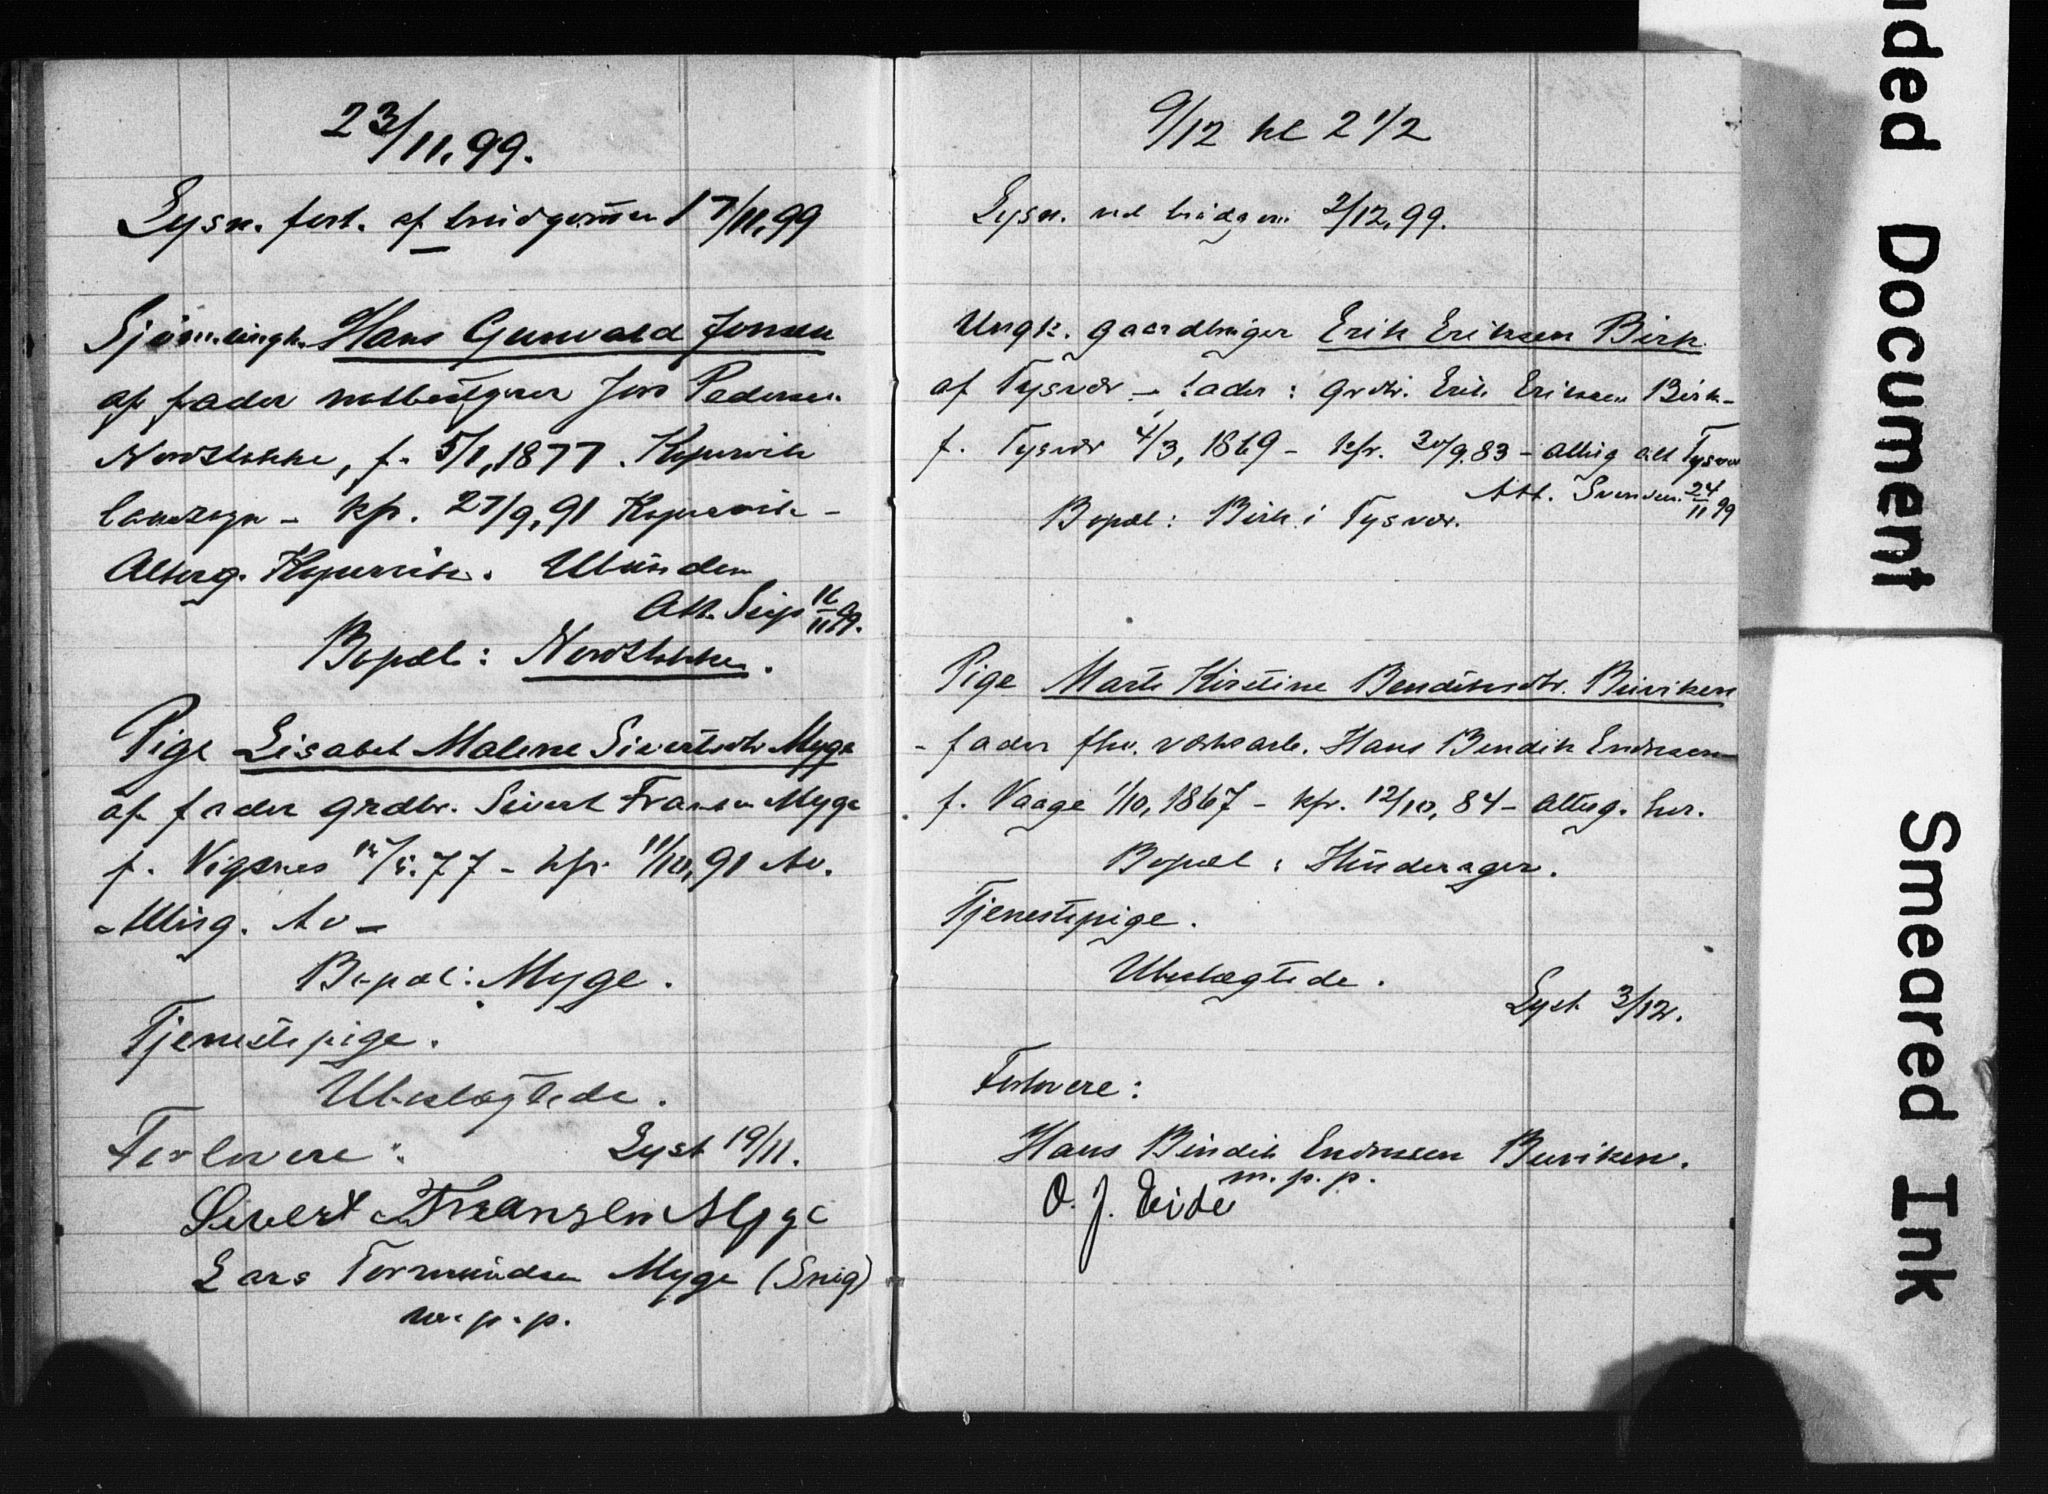 23/11.99.
Lysn. forl. af brudgommen 17/11.99
Sjöm. ungk. Hans Gunvald Jonsen
af fader notbastgver Jon Pedersen
Nordstokke, f. 5/1, 1877. Kopervik
landsogn - kfr. 27/9, 91 Kopervik -
Alterg. Kopervik. Ubunden
Att. Seip 16/11 99.
Bopæl: Nordstokke.
Pige Lisabet Malene Sivertsdtr. Myge
af fader grdbr. Sivert Fransen Myge
f. Vigsnes /5.77 - kfr. 11/10, 91 Av.
- Alterg. Av -
Bopæl: Myge.
Tjenestepige.
Ubeslægtede.
Forlovere: Lyst 19/11.
Sivert Fransen Myge
Lars Tormundsen Myge (Snig)
m.p.p.
9/12 kl 2 1/2
Lysn. ved brudgom 2/12.99.
Ungk. gaardbruger Erik Eriksen Birk
af Tysvær - fader: grdbr. Erik Eriksen Birk -
f. Tysvær 4/3, 1869 - kfr. 30/9.83 - alterg alt Tysvær
Att. Svendsen. 24/11 99
Bopæl: Birk i Tysvær.
Pige Marte Kirstine Bendiksdtr. Buviken
- fader fhv. værksarb. Hans Bendik Endresen -
f. Vaage 1/10, 1867 - kfr. 12/10, 84 - alterg. her.
Bopæl: Hinderager.
Tjenestepige.
Ubeslægtede.
Lyst 3/12.
Forlovere:
Hans Bendik Endresen Buviken.
m.p.p.
O. J. Eide
ded Document
Smeared Ink